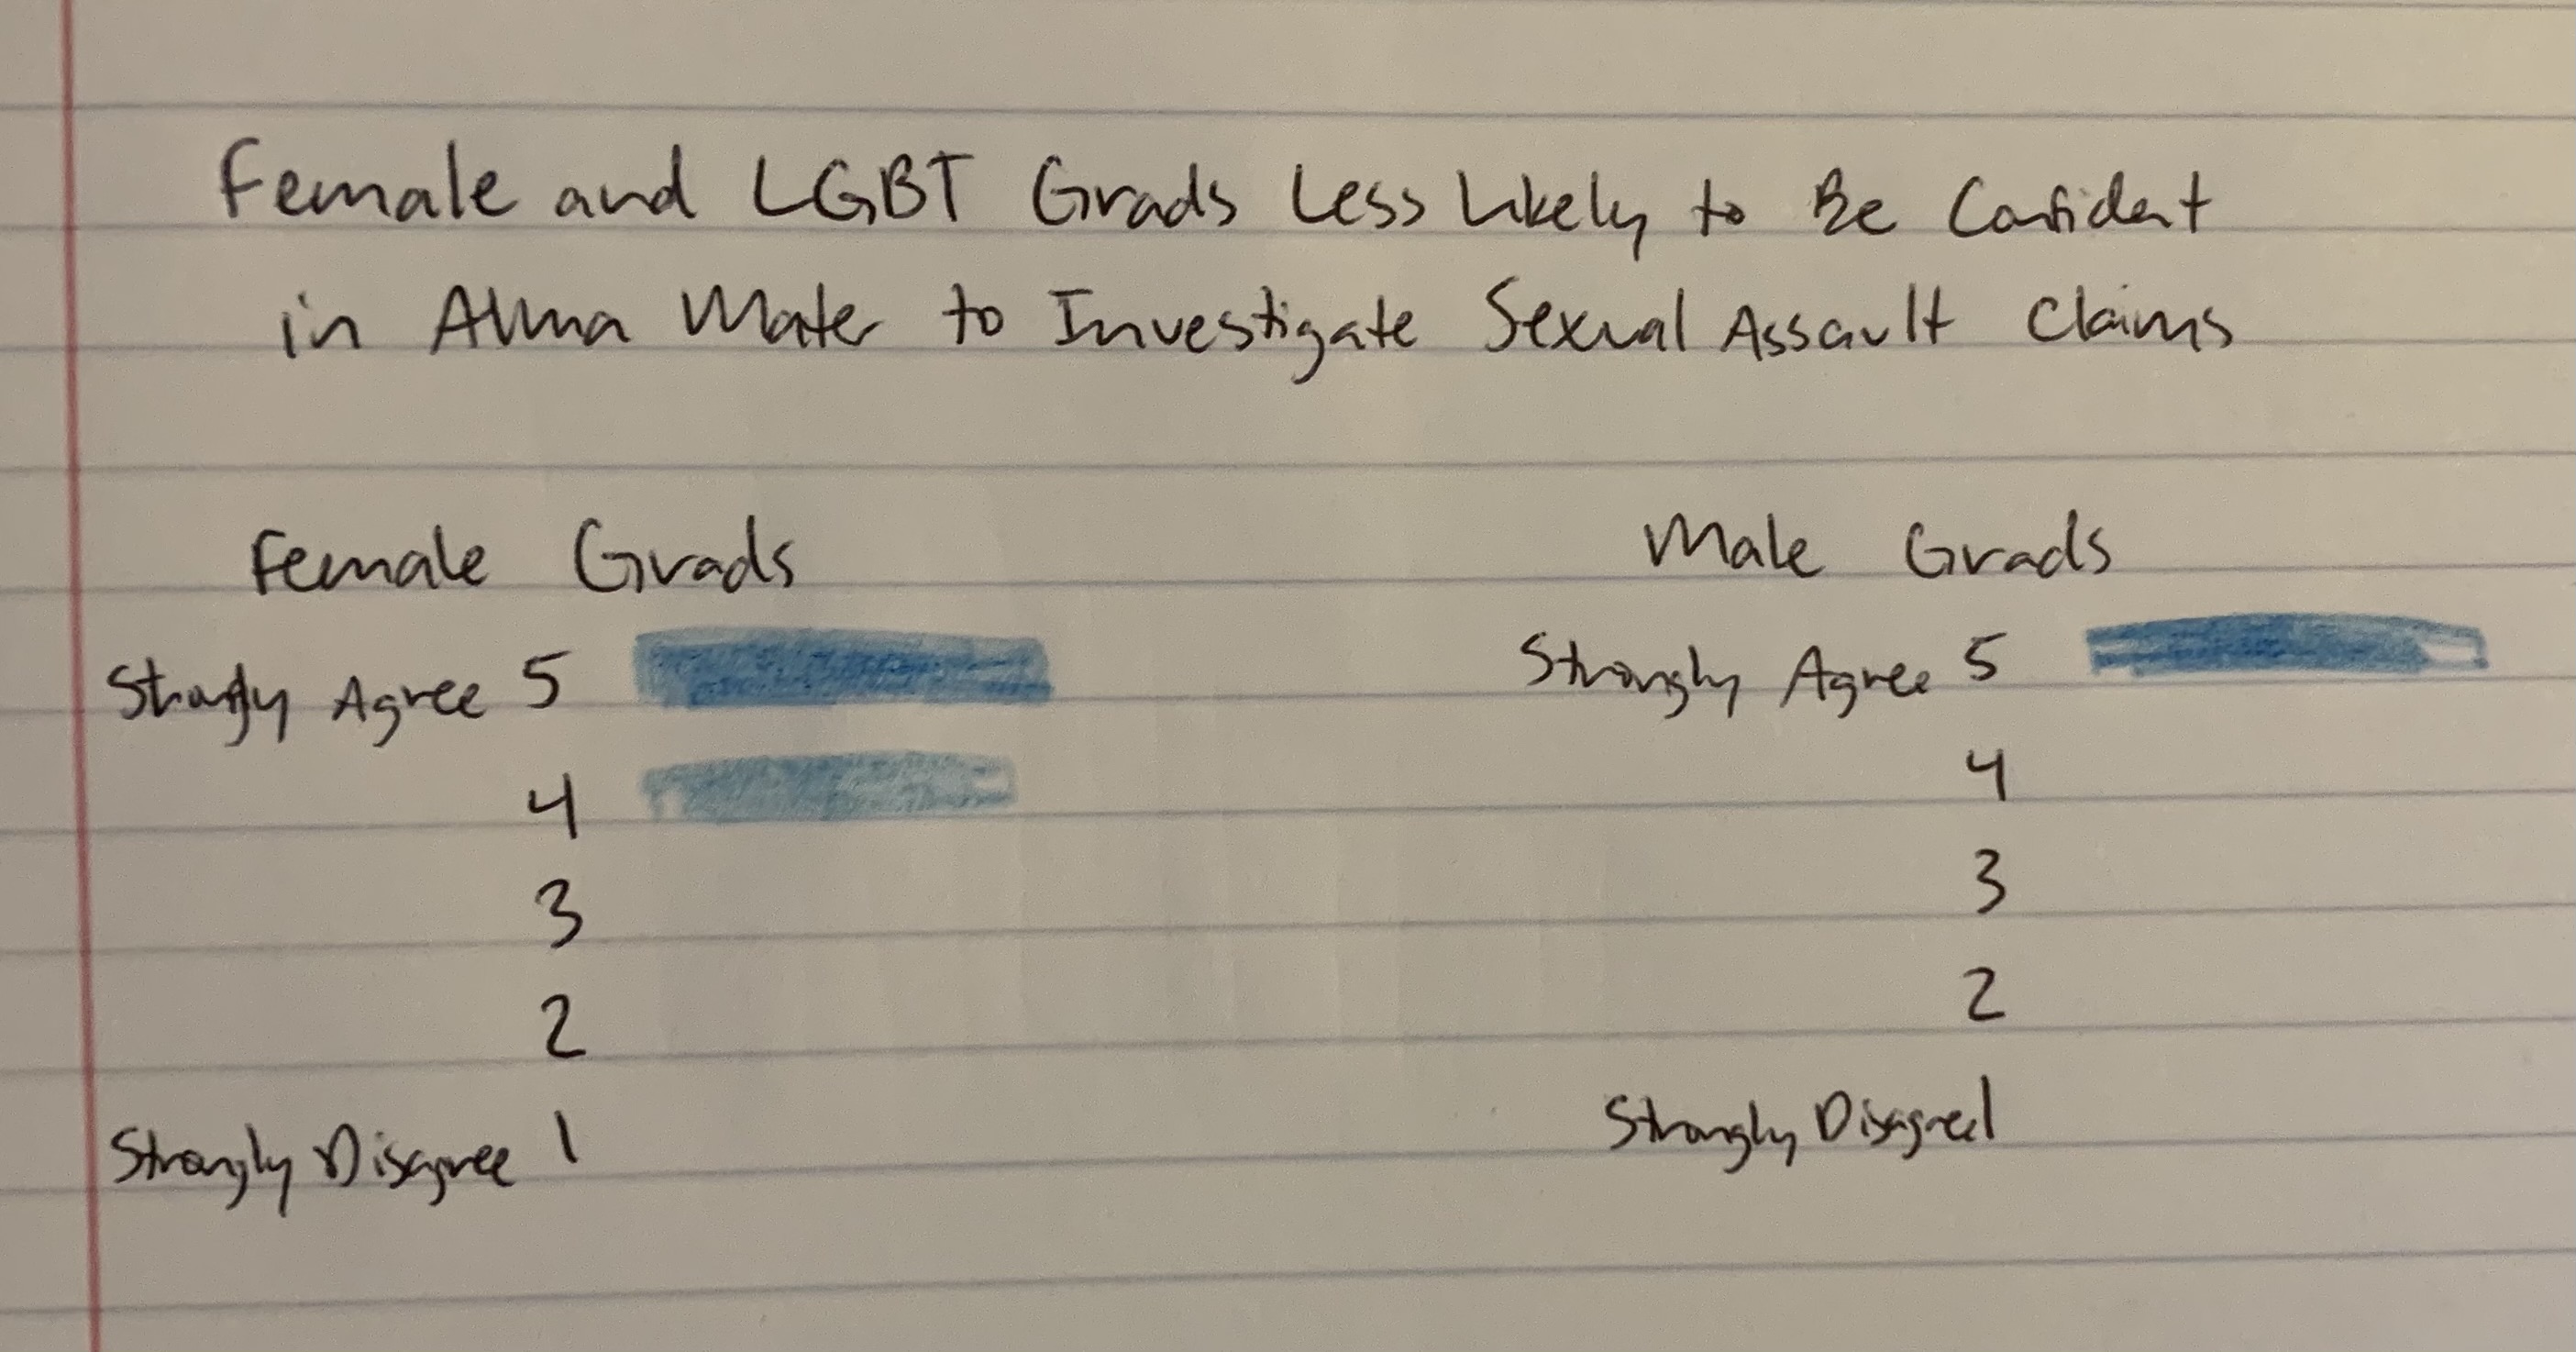 Female and LGBT Grads Less Likely to Be Confident
in Alma Mater to Investigate Sexual Assault Claims
Female Grads
Male Grads
Strongly Agree 5
Strongly Agree 5
4
4
3
3
2
2
Strongly Disagree 1
Strongly Disagree 1